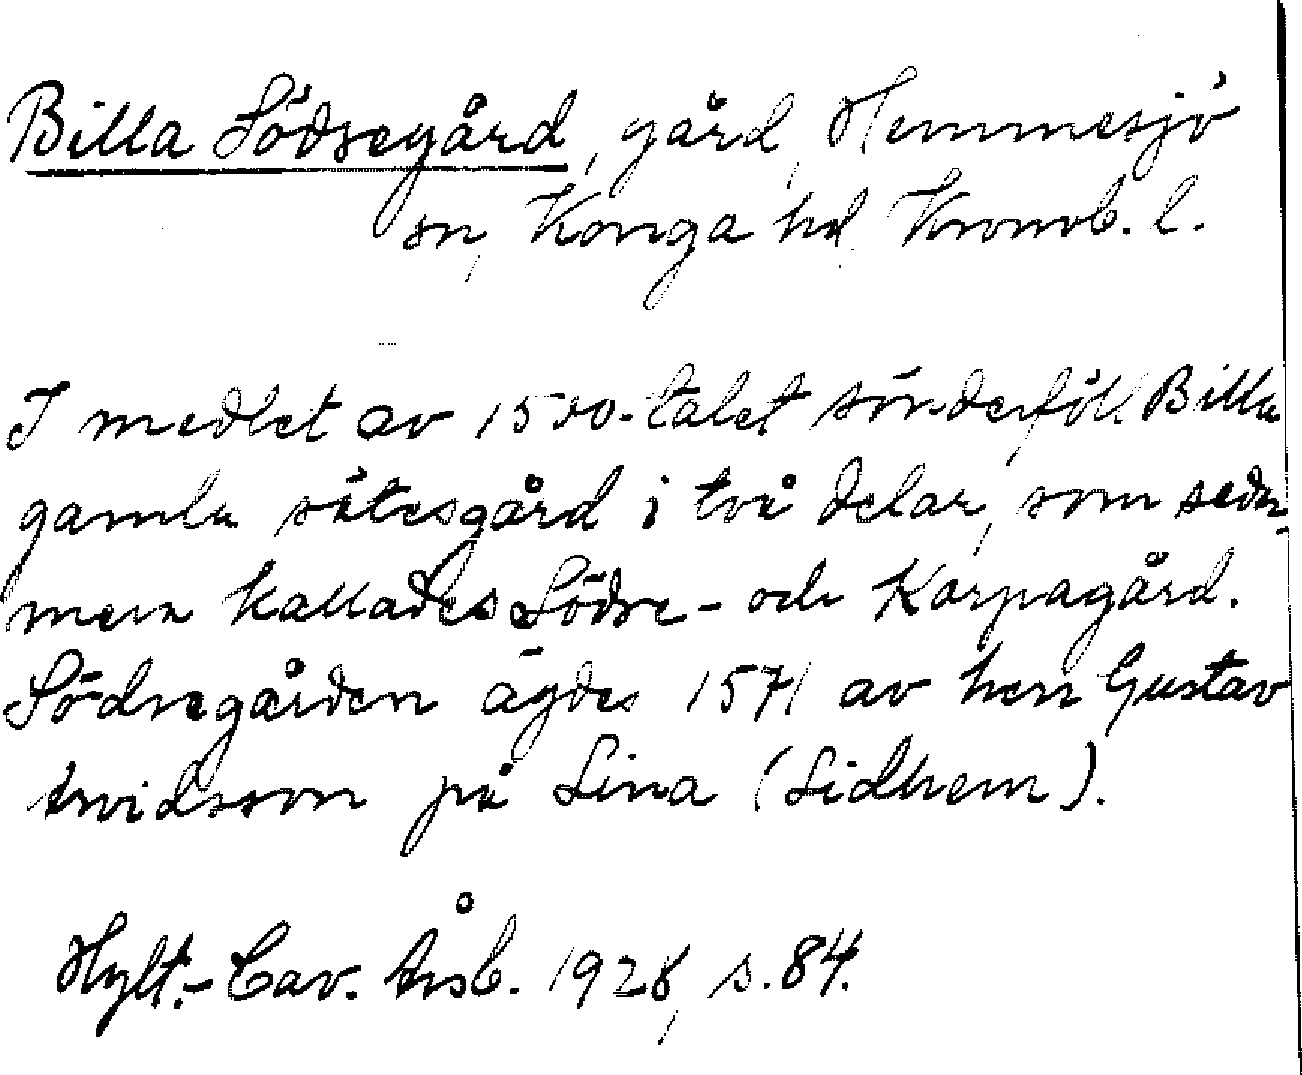 Billa Södregård, gård, Hemmesjö
sn, Konga hd, Kronob. l.
I medlet av 1500-talet sönderföll Billa
gamla sätesgård i två delar, som seder-
mera kallades Södre- och Karpagård.
Södregården ägdes 1571 av herr Gustav
Arvidsson på Lina (Lidhem).
Hylt.-Cav. Årsb. 1928, s. 84.